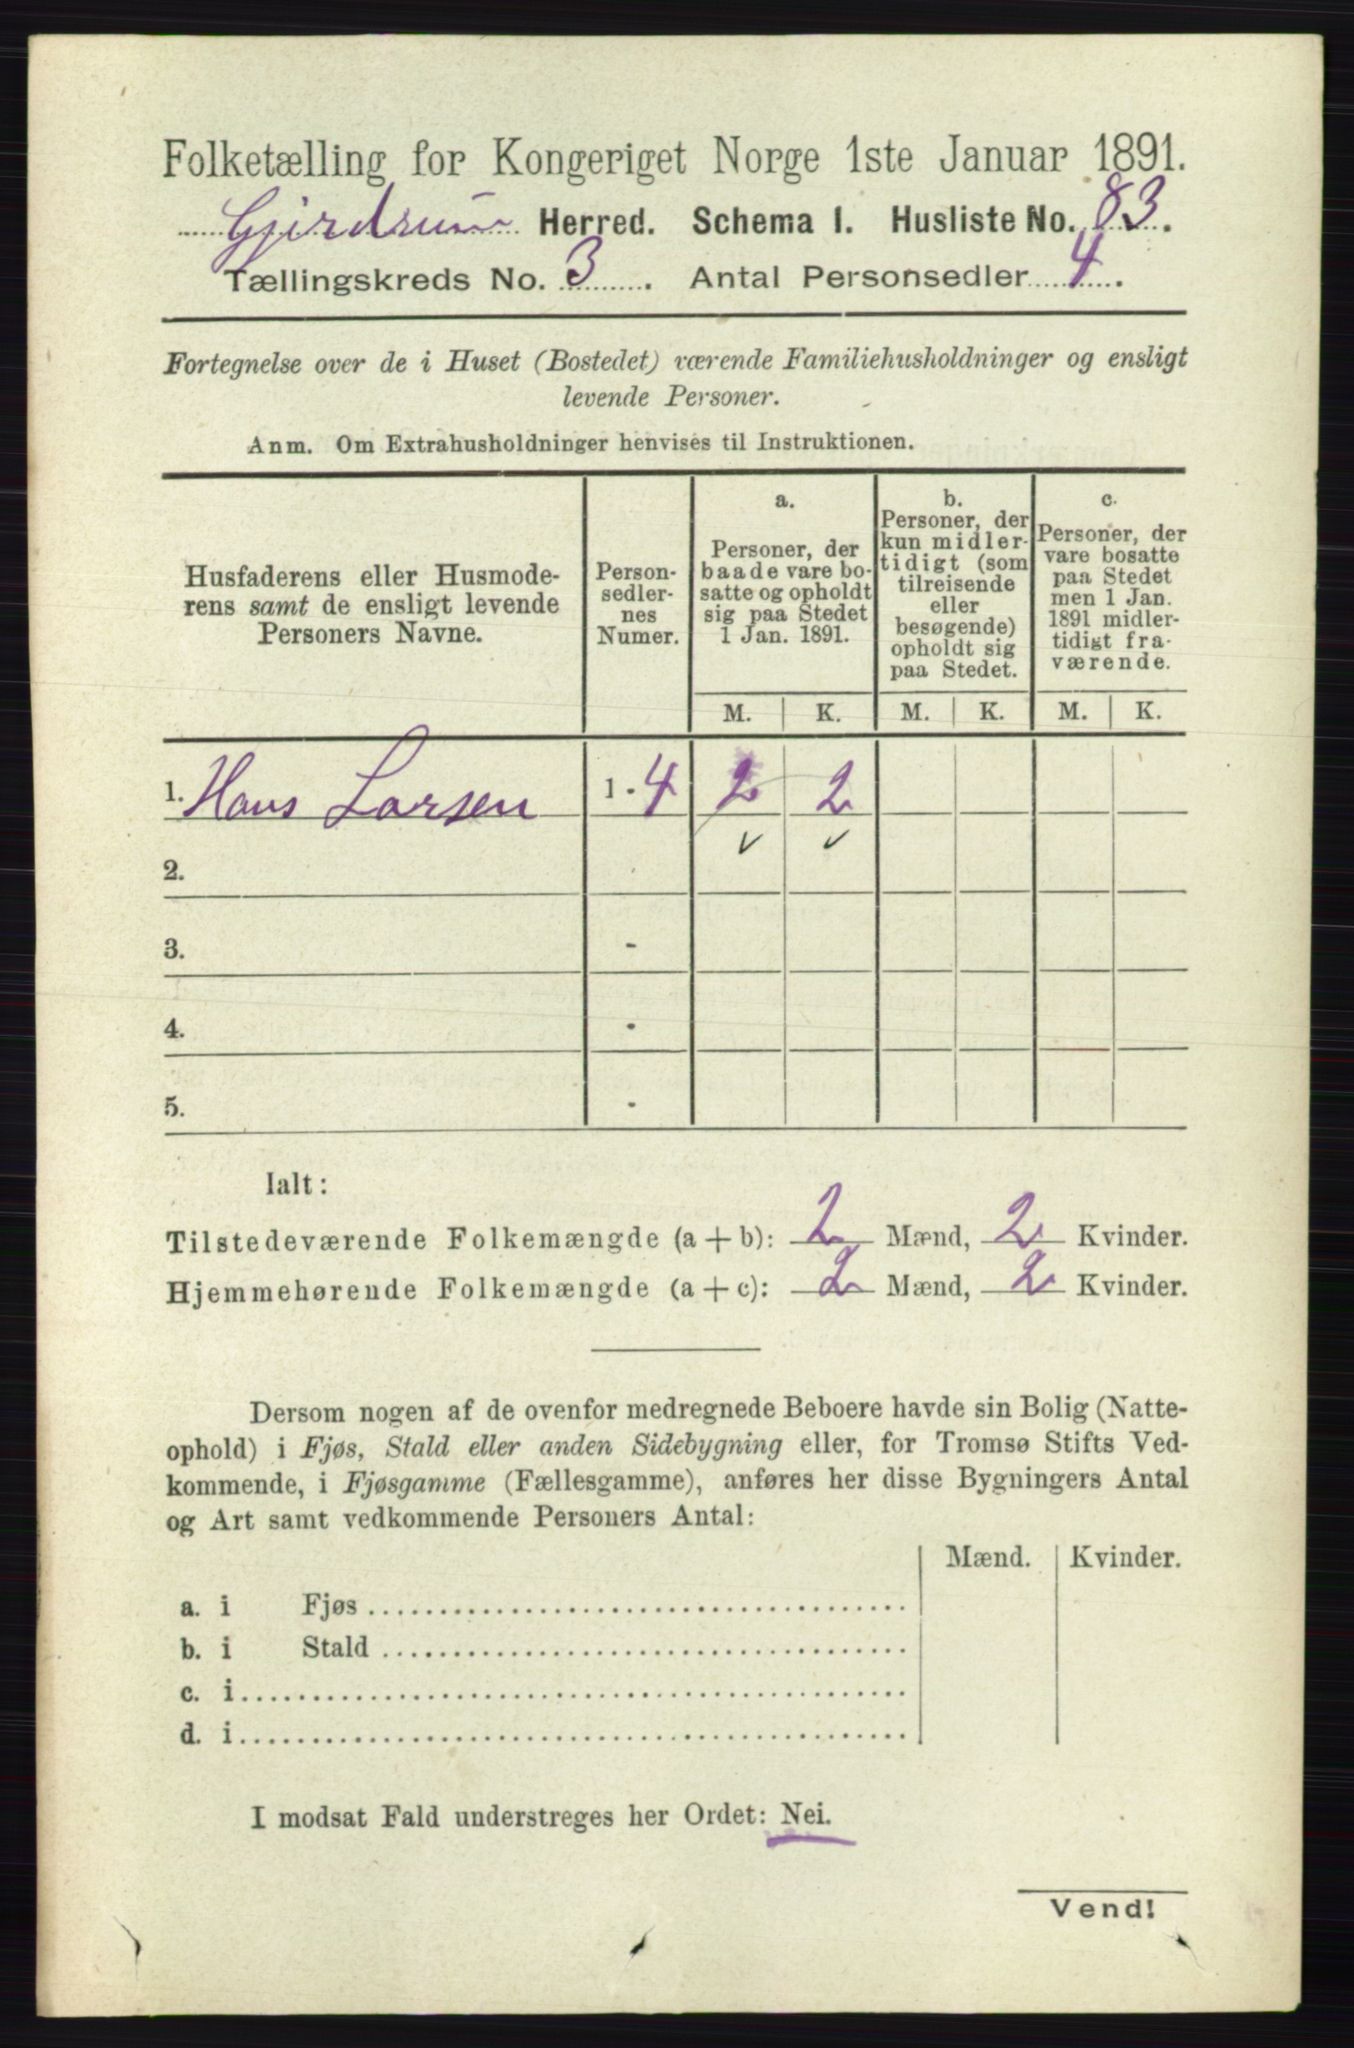 Folketælling for Kongeriget Norge 1ste Januar 1891.
Gjerdrum Herred. Schema I. Husliste No. 83.
Tællingskreds No. 3. Antal Personsedler 4.
Fortegnelse over de i Huset (Bostedet) værende Familiehusholdninger og ensligt
levende Personer.
Anm. Om Extrahusholdninger henvises til Instruktionen.
Husfaderens eller Husmode-
rens samt de ensligt levende
Personers Navne.
Person-
sedler-
nes
Numer.
a.
Personer, der
baade vare bo-
satte og opholdt
sig paa Stedet
1 Jan. 1891.
b.
Personer, der
kun midler-
tidigt (som
tilreisende
eller
besøgende)
opholdt sig
paa Stedet.
c.
Personer, der
vare bosatte
paa Stedet
men 1 Jan.
1891 midler-
tidigt fra-
værende.
M. K. M. K. M. K.
1. Hans Larsen 1 - 4 2 2
2.
3. -
4. -
5. -
Ialt:
Tilstedeværende Folkemængde (a + b): 2 Mænd, 2 Kvinder.
Hjemmehørende Folkemængde (a + c): 2 Mænd, 2 Kvinder.
Dersom nogen af de ovenfor medregnede Beboere havde sin Bolig (Natte-
ophold) i Fjøs, Stald eller anden Sidebygning eller, for Tromsø Stifts Ved-
kommende, i Fjøsgamme (Fællesgamme), anføres her disse Bygningers Antal
og Art samt vedkommende Personers Antal:
Mænd. Kvinder.
a. i Fjøs
b. i Stald
c. i
d. i
I modsat Fald understreges her Ordet: Nei.
Vend!